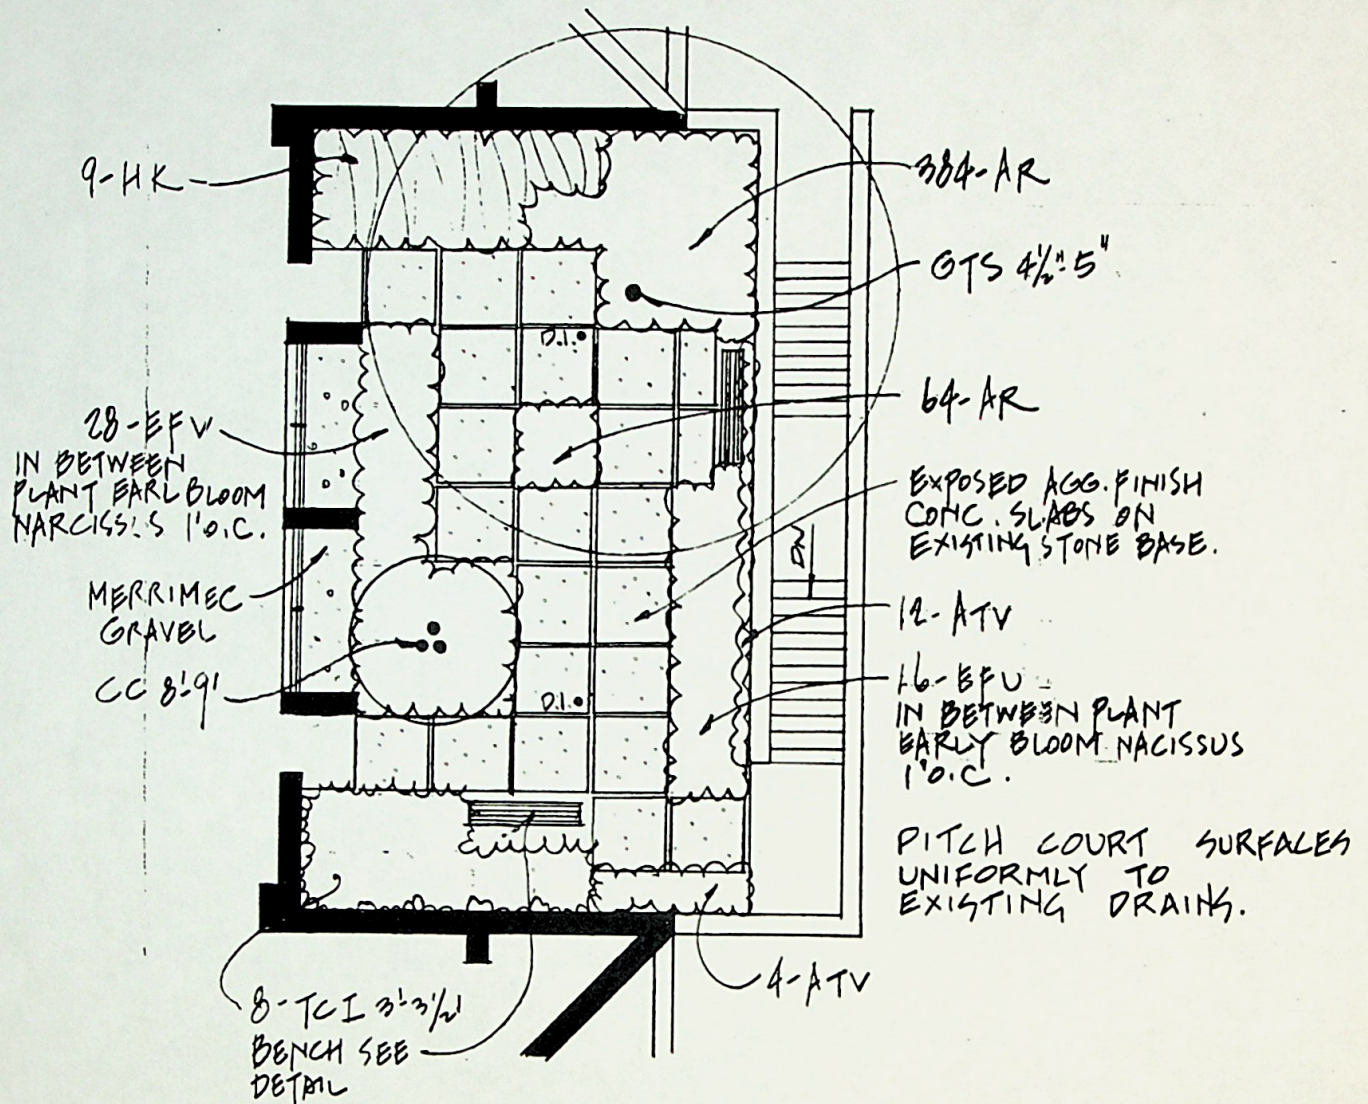 9-HK
384-AR
GTS 4½"-5"
D.I.
64-AR
28-EFV
IN BETWEEN
PLANT EARL BLOOM
NARCISSIS 1'O.C.
EXPOSED AGG. FINISH
CONC. SLABS ON
EXISTING STONE BASE.
DN
MERRIMEC
GRAVEL
12-ATV
CC 8'-9'
16-EFU
IN BETWEEN PLANT
EARLY BLOOM NACISSUS
1'O.C.
D.I.
PITCH COURT SURFACES
UNIFORMLY TO
EXISTING DRAINS.
4-ATV
8-TCI 3'-3½'
BENCH SEE
DETAIL